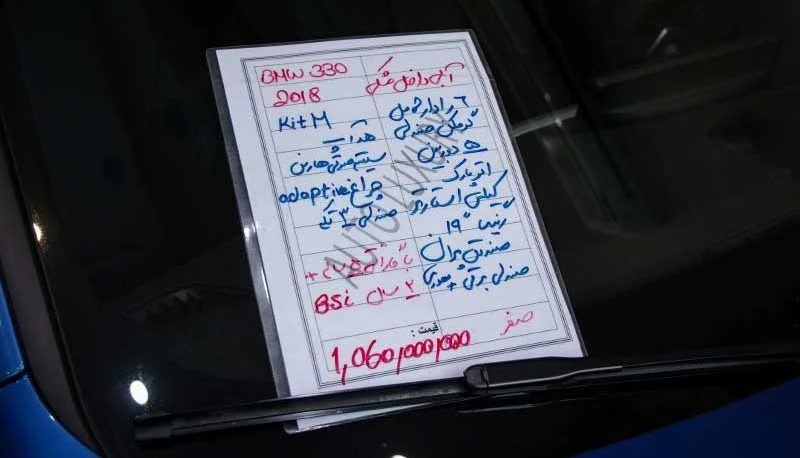 BMW 330 آبی داخل مشکی
2018
۶ رادار کامل
Kit M گرمکن صندلی
هدآپ ۵ دوربین
سیستم صوتی هارمن اتوپارک
چراغ adaptive کیلس استارتر
صندلی ۳ تیکه رینگ "۱۹
صندوق برقی
+ با گارانتی
صندلی برقی +
۲ سال BSi
صفر
قیمت :
1,060,000,000
AUTO LUXURY